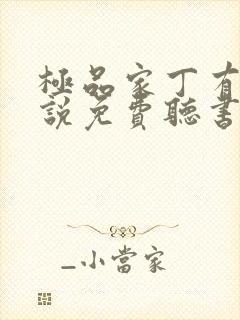 極品家丁有
說免費聽書
_小當家